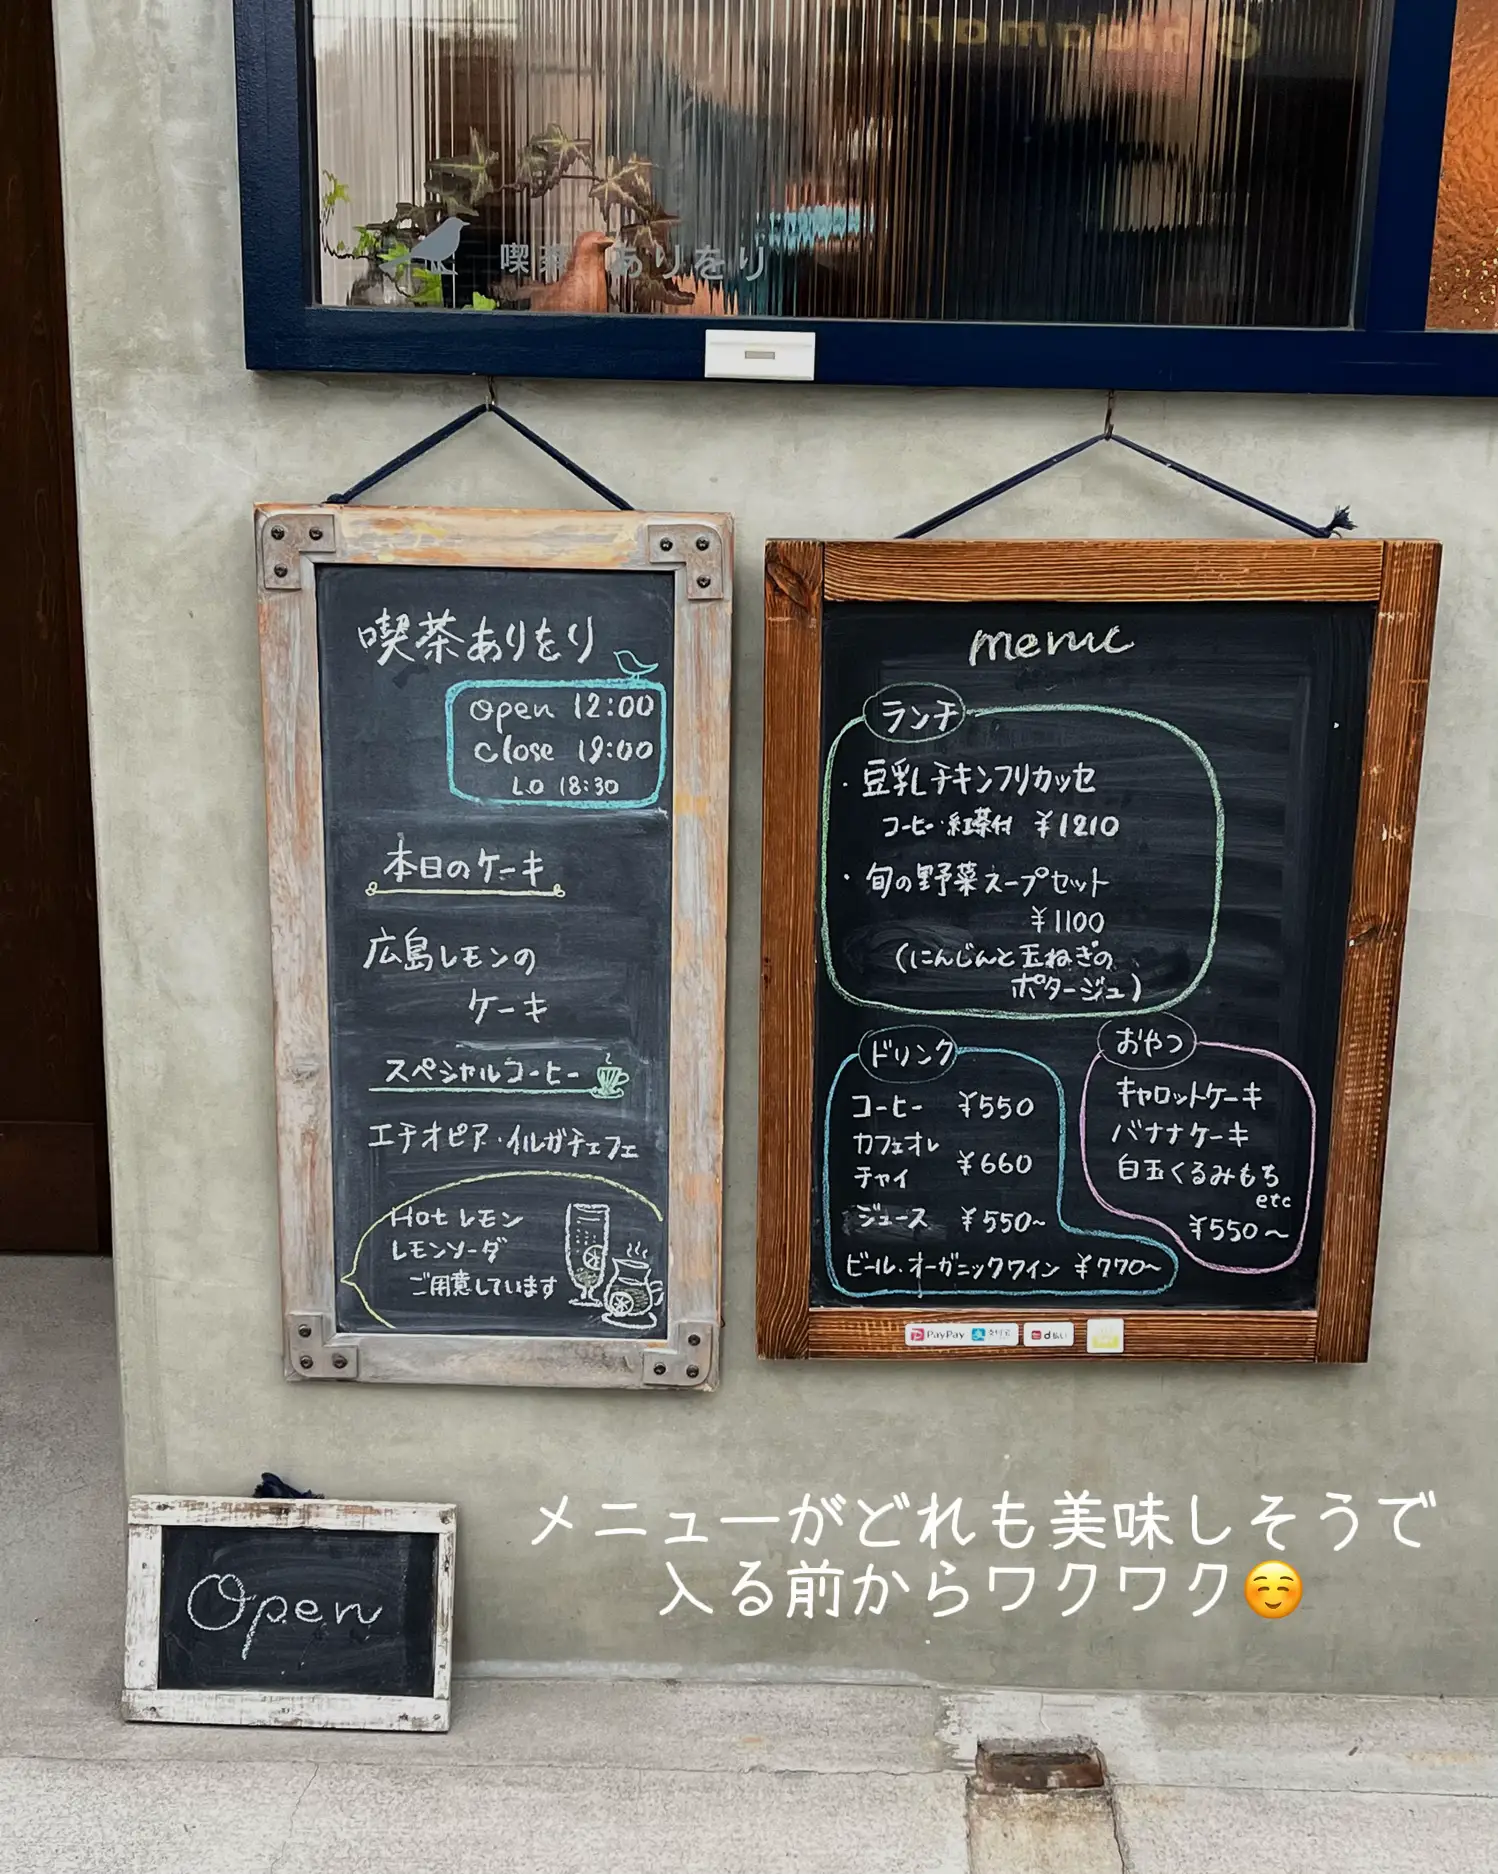 喫茶 ありをり
喫茶ありをり
open 12:00
close 19:00
L.O 18:30
本日のケーキ
広島レモンの
ケーキ
スペシャルコーヒー
エチオピア・イルガチェフェ
Hot レモン
レモンソーダ
ご用意しています
menu
ランチ
・豆乳チキンフリカッセ
コーヒー・紅茶付 ¥1210
・旬の野菜スープセット
¥1100
(にんじんと玉ねぎの
ポタージュ)
ドリンク
コーヒー ¥550
カフェオレ
チャイ ¥660
ジュース ¥550~
ビール・オーガニックワイン ¥770~
おやつ
キャロットケーキ
バナナケーキ
白玉くるみもち
etc
¥550~
PayPay 支付宝 d払い
Open
メニューがどれも美味しそうで
入る前からワクワク☺️